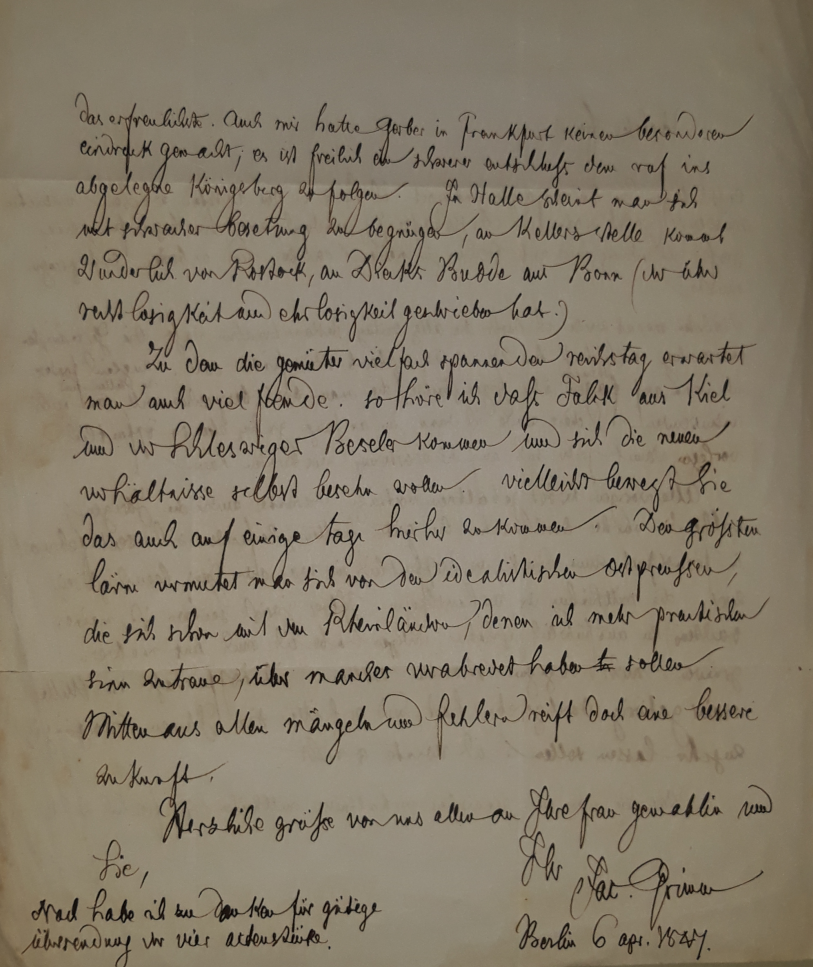 das erfreulichste. Auch mir hatte Gerber in Frankfurt keinen besonderen
eindruck gemacht; es ist freilich ein schwerer entschluss dem ruf ins
abgelegne Königsberg zu folgen. In Halle scheint man sich
mit schwacher besetzung zu begnügen, an Kellers stelle kommt
Wunderlich von Rostock, an Diecks Budde aus Bonn (der über
rechtlosigkeit und ehrlosigkeit geschrieben hat.)
Zu dem die gemüter vielfach spannenden reichstag erwartet
man auch viel fremde. so höre ich dass Falck aus Kiel
und der Schleswiger Beseler kommen und sich die neuen
verhältnisse selbst besehn wollen. vielleicht bewegt Sie
das auch auf einige tage hierher zu kommen. Den grössten
lärm vermutet man sich von den idealistischen Ostpreussen,
die sich schon mit den Rheinländern, denen ich mehr practischen
sinn zutraue, über manches verabredet haben sollen.
Mitten aus allen mängeln und fehlern reift doch eine bessere
zukunft.
Herzliche grüsse von uns allen an Ihre frau gemahlin und
Sie,
Ihr
Jac. Grimm
Noch habe ich zu danken für gütige
übersendung der vier actenstücke.
Berlin 6 apr. 1847.